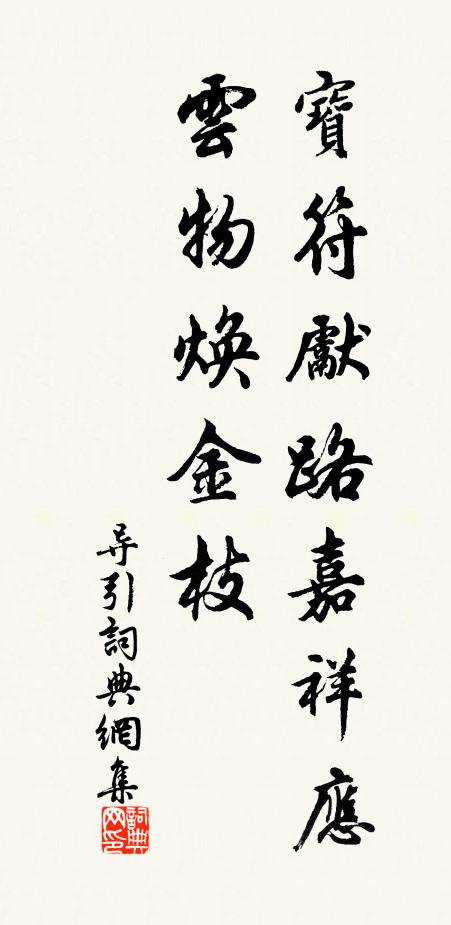 寶符獻路嘉祥應
雲物煥金枝
导引詞典網集
詞典网印